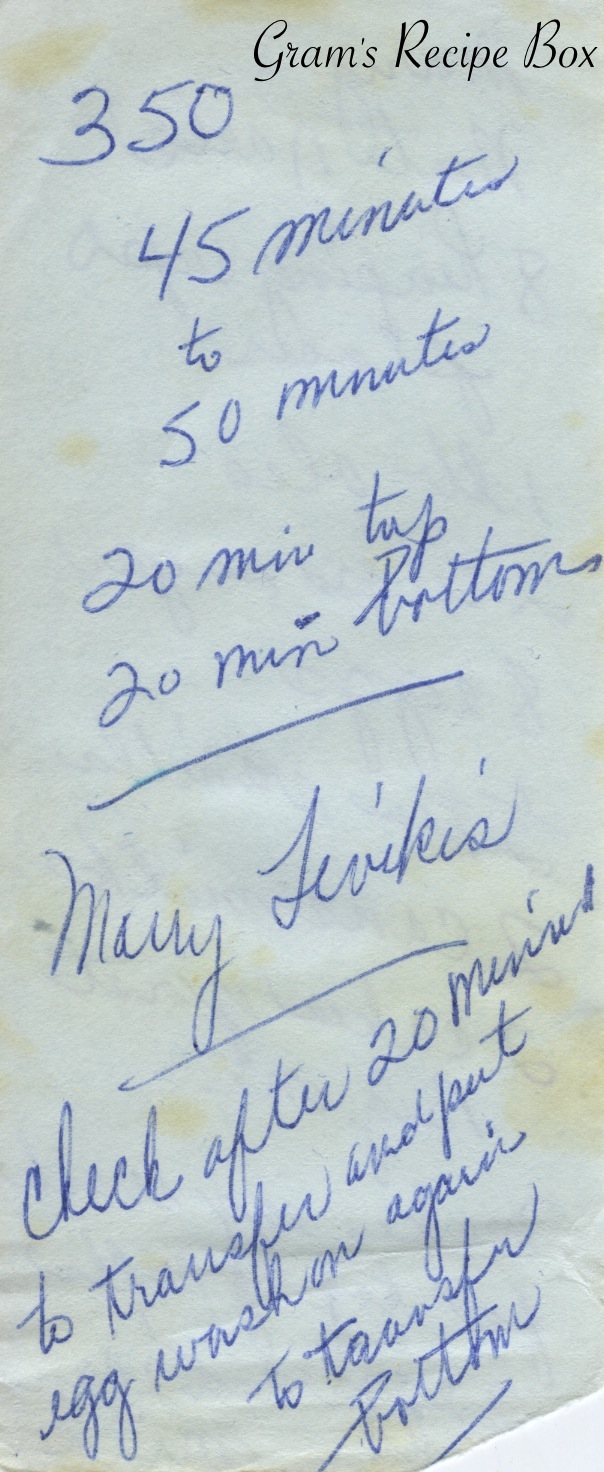 Gram's Recipe Box
350
45 minutes
to
50 minutes
20 min top
20 min bottom
Mary
check after 20
to transfer and put
egg wash on again
to transfer
bottom